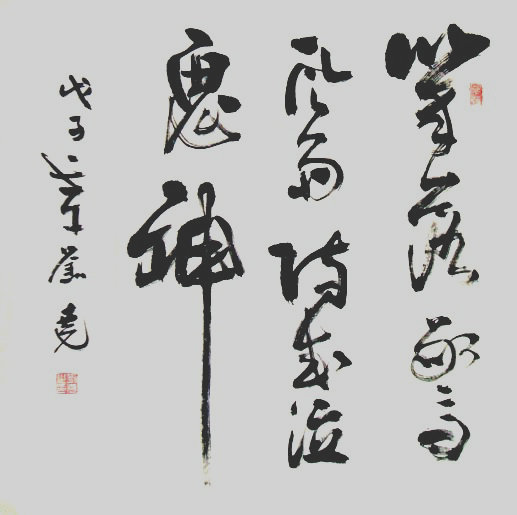 筆落驚
風雨詩成泣
鬼神
戊子年